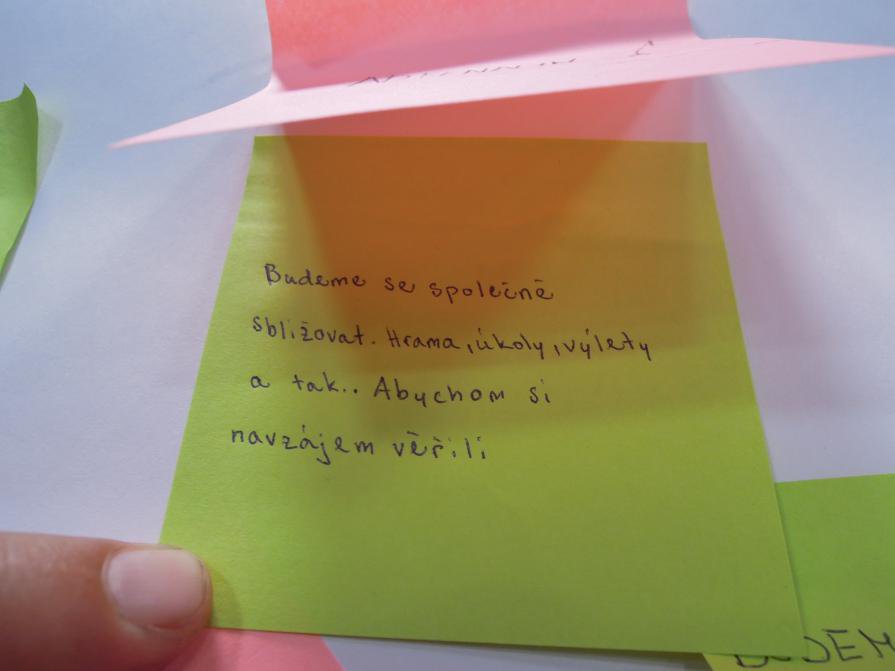 Budeme se společně
sbližovat. Hrama, úkoly, výlety
a tak.. Abychom si
navzájem věřili